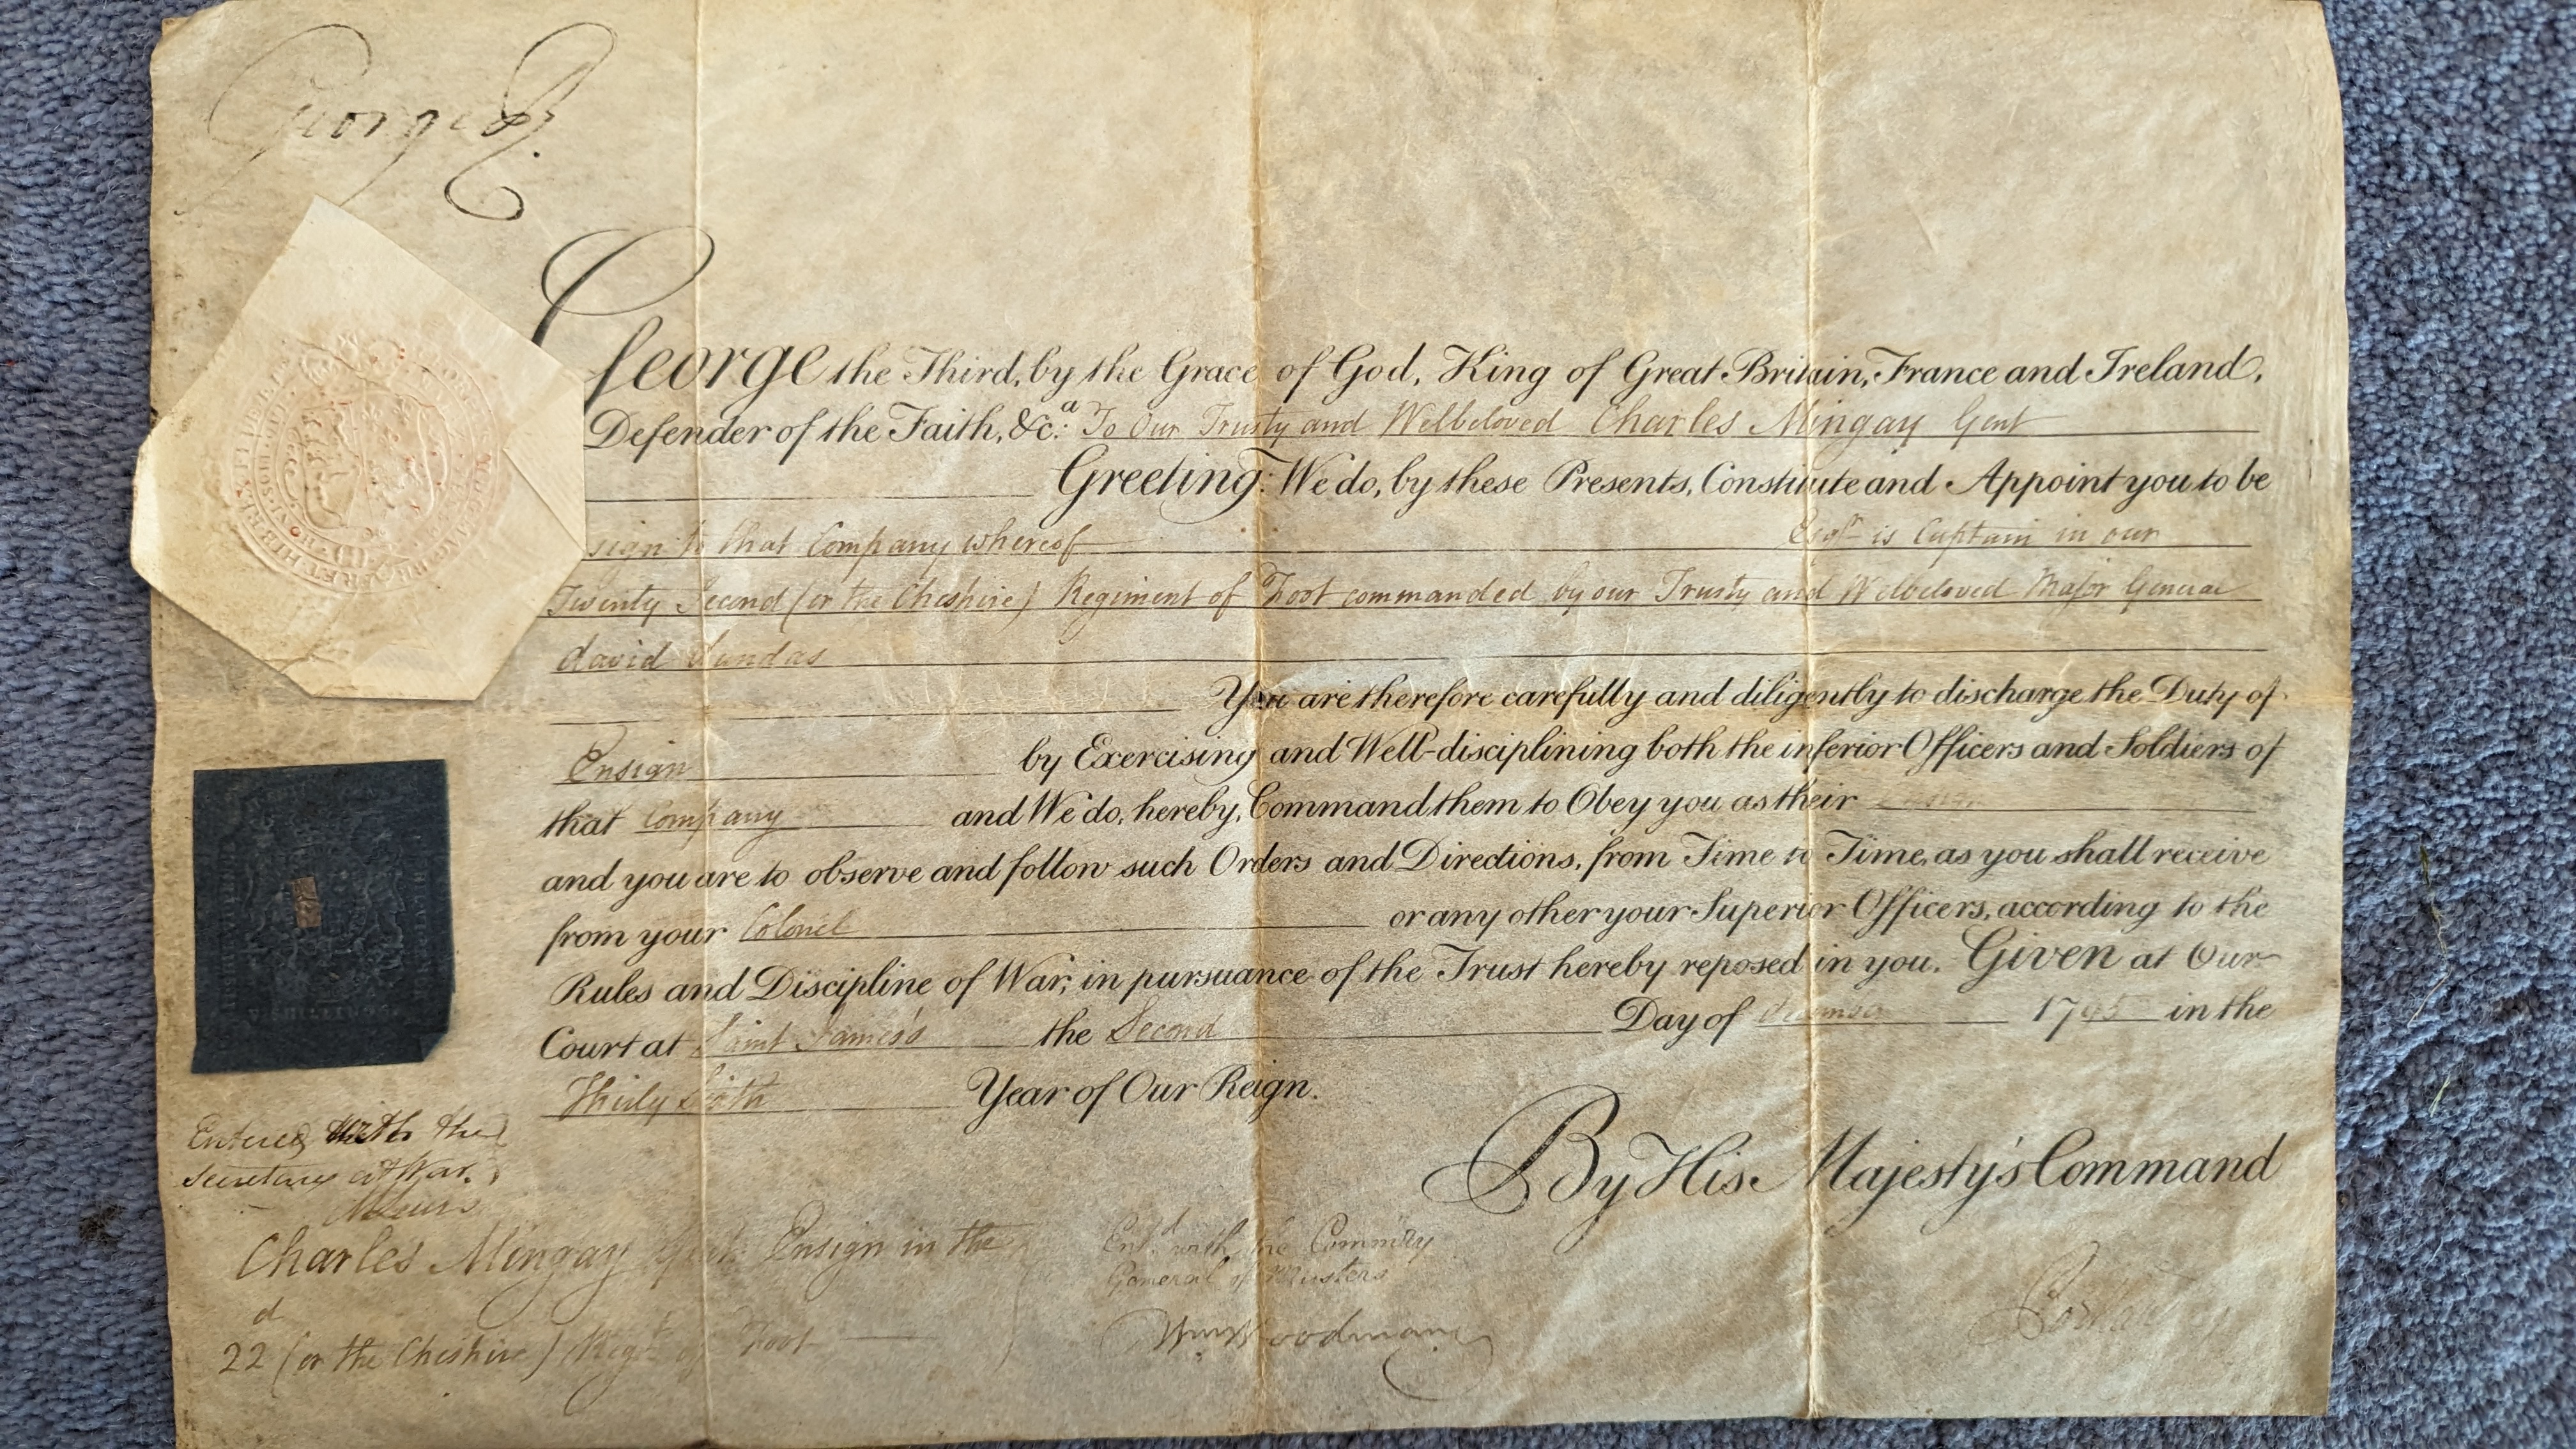 George R.
George the Third, by the Grace of God, King of Great Britain, France and Ireland,
Defender of the Faith, &c.ª To Our Trusty and Welbeloved Charles Mingay Gent
Greeting: We do, by these Presents, Constitute and Appoint you to be
sign to that Company whereof Esqr. is Captain in our
Twenty Second (or the Cheshire) Regiment of Foot commanded by our Trusty and Welbeloved Major General
David Dundas
You are therefore carefully and diligently to discharge the Duty of
Ensign by Exercising and Well-disciplining both the inferior Officers and Soldiers of
that Company and We do, hereby, Command them to Obey you as their
and you are to observe and follow such Orders and Directions, from Time to Time, as you shall receive
from your Colonel or any other your Superior Officers, according to the
Rules and Discipline of War, in pursuance of the Trust hereby reposed in you. Given at Our
Court at Saint James's the Second Day of 1795 in the
Thirty Sixth Year of Our Reign.
By His Majesty's Command
V SHILLINGS
Entered with the
Secretary at War.
Charles Mingay Gent. Ensign in the
22d (or the Cheshire) Regt. of Foot
Entd. with the Commissy
General of Musters
Wm Woodman
Portland